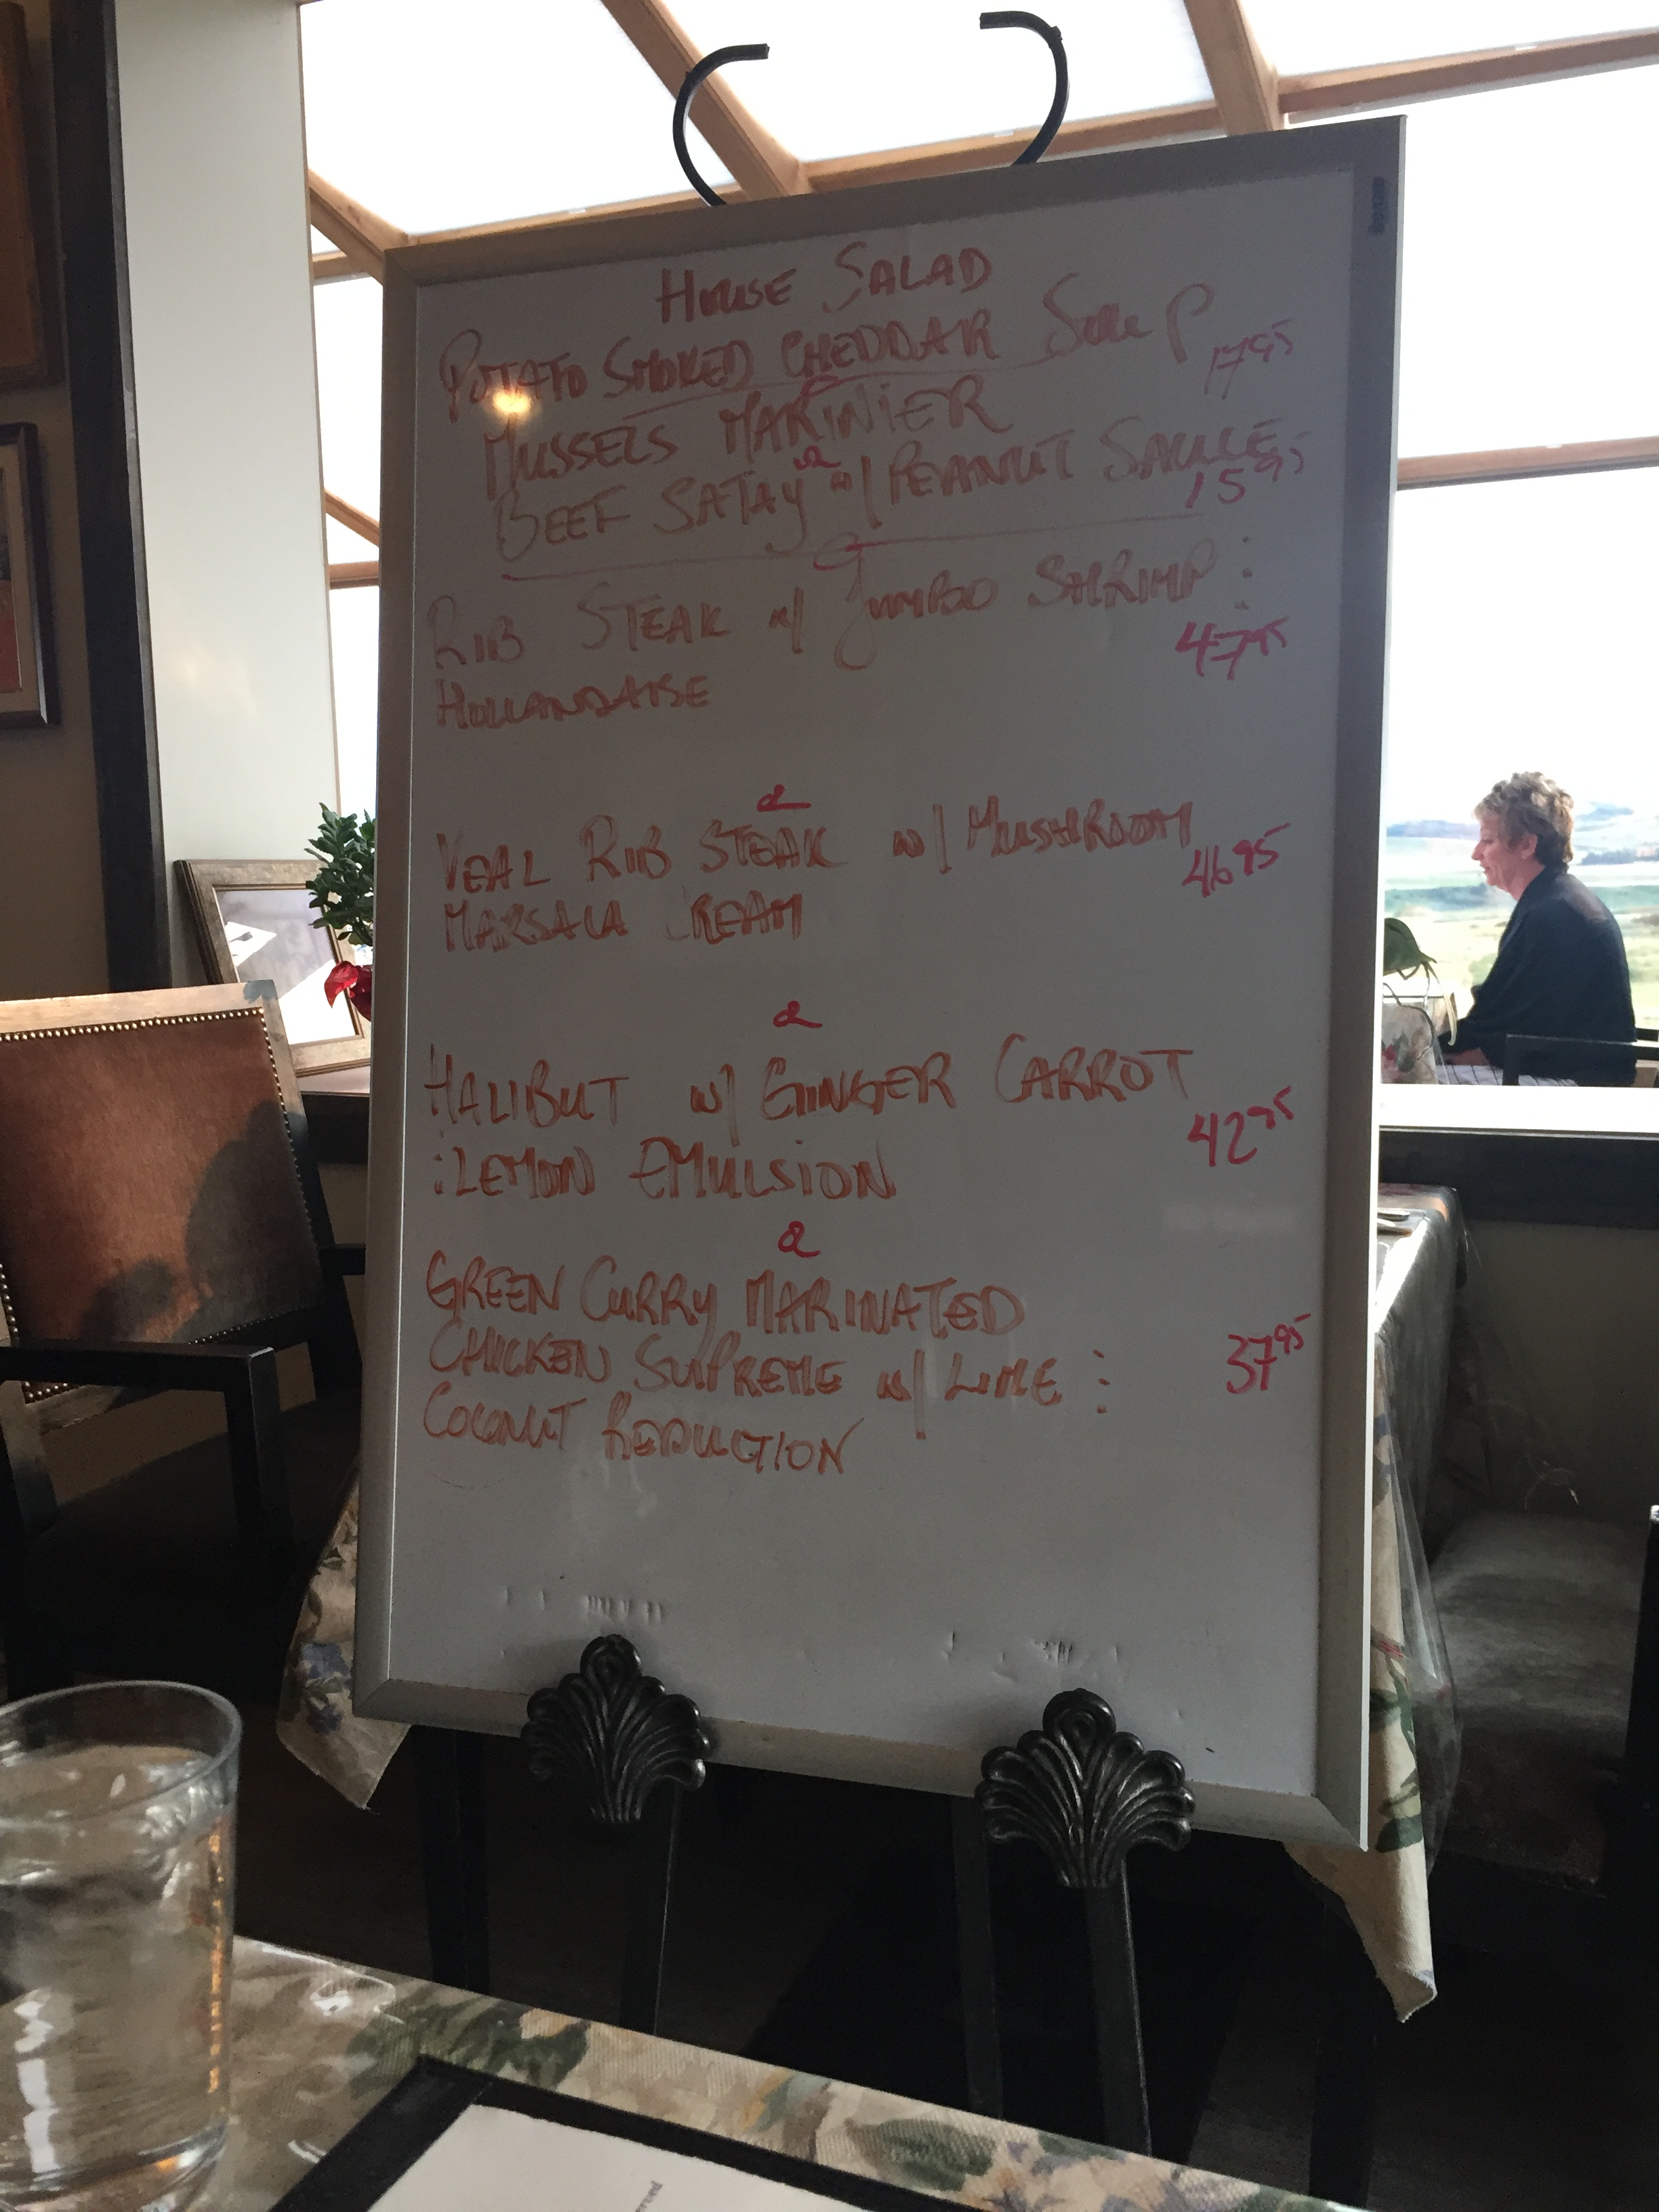 HOUSE SALAD
POTATO SMOKED CHEDDAR SOUP
MUSSELS MARINIER 17 95
BEEF SATAY w/ PEANUT SAUCE
15 95
RIB STEAK w/ JUMBO SHRIMP :
HOLLANDAISE 47 95
VEAL RIB STEAK w/ MUSHROOM
MARSALA CREAM 46 95
HALIBUT w/ GINGER CARROT
: LEMON EMULSION 42 95
GREEN CURRY MARINATED
CHICKEN SUPREME w/ LIME : 37 95
COCONUT REDUCTION